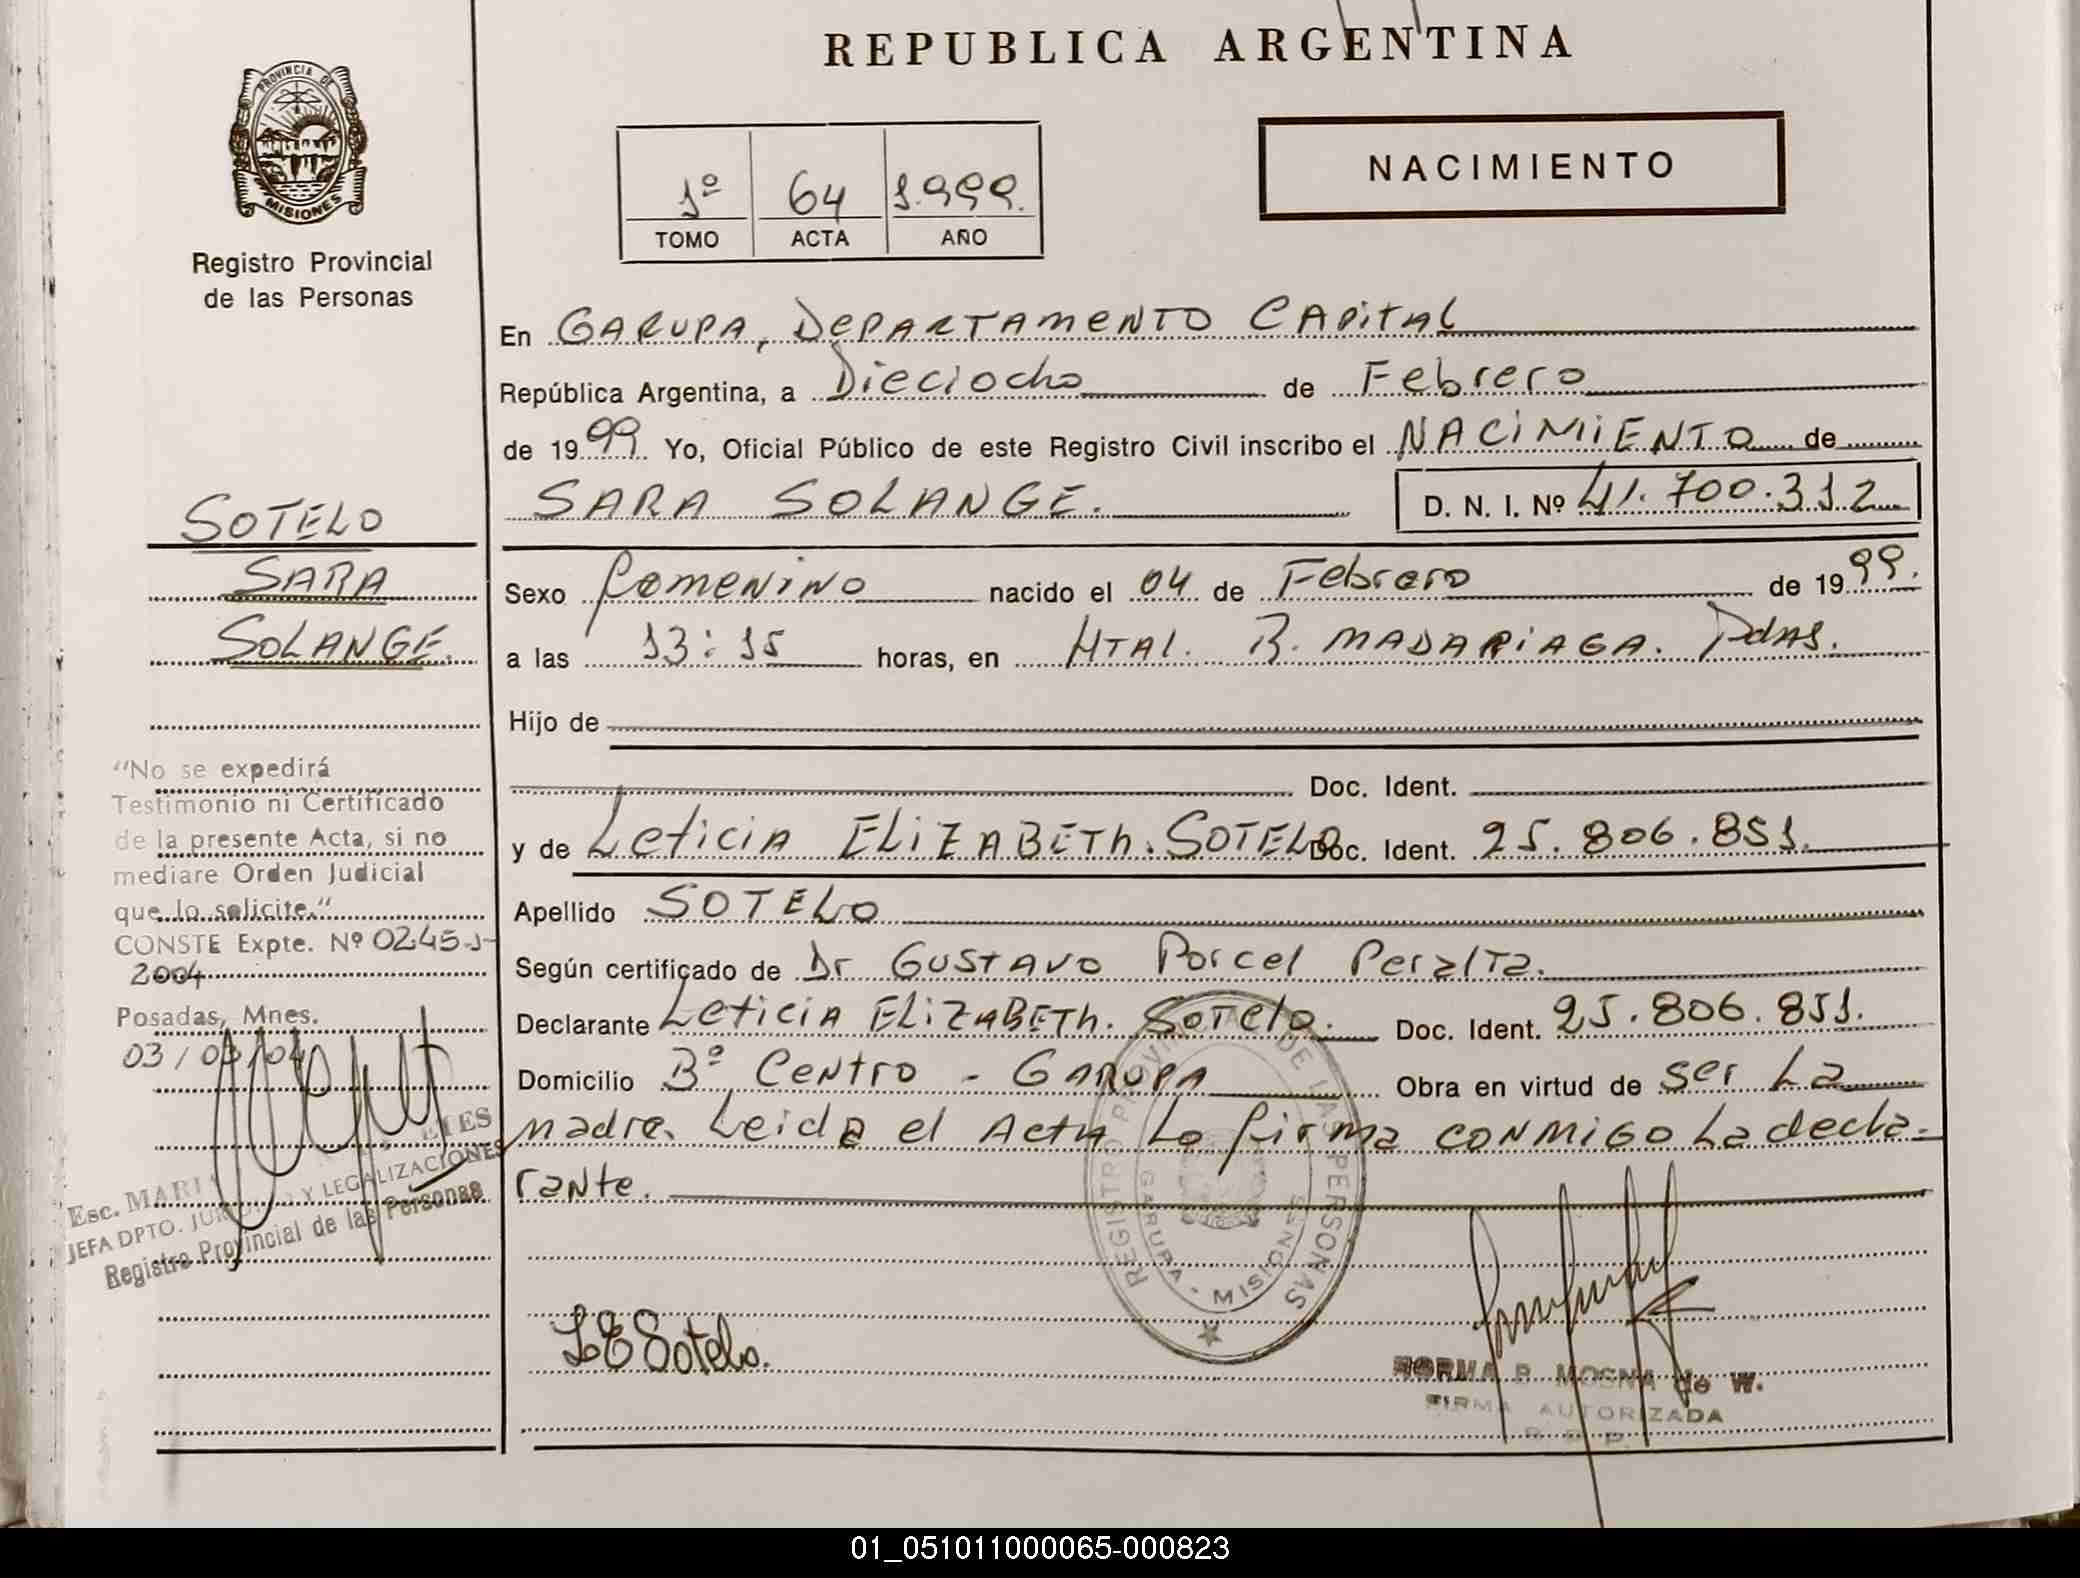 REPUBLICA ARGENTINA
PROVINCIA DE
MISIONES
Registro Provincial
de las Personas
1º 64 1.999.
TOMO ACTA AÑO
NACIMIENTO
En GARUPA, DEPARTAMENTO CAPITAL
República Argentina, a Dieciocho de Febrero
de 1999. Yo, Oficial Público de este Registro Civil inscribo el NACIMIENTO de
SARA SOLANGE. D. N. I. Nº 41.700.312
Sexo femenino nacido el 04 de Febrero de 1999.
a las 13:15 horas, en HTAL. R. MADARIAGA. Pdas.
Hijo de
Doc. Ident.
y de Leticia ELIZABETH. SOTELO Doc. Ident. 25.806.851.
Apellido SOTELO
Según certificado de Dr GUSTAVO Porcel Peralta.
Declarante Leticia ELIZABETH. Sotelo. Doc. Ident. 25.806.851.
Domicilio Bº Centro - GARUPA Obra en virtud de ser La
madre. Leida el Acta La firma CONMIGO La decla-
rante.
SOTELO
SARA
SOLANGE.
"No se expedirá
Testimonio ni Certificado
de la presente Acta, si no
mediare Orden Judicial
que lo solicite."
CONSTE Expte. Nº 0245-J-
2004
Posadas, Mnes.
03/03/04
Esc. MARI
JEFA DPTO. Y LEGALIZACIONES
Registro Provincial de las Personas
REGISTRO PROVINCIAL DE LAS PERSONAS
GARUPA - MISIONES
LE Sotelo.
NORMA B. MOSNA de W.
FIRMA AUTORIZADA
R. P. P.
01_051011000065-000823